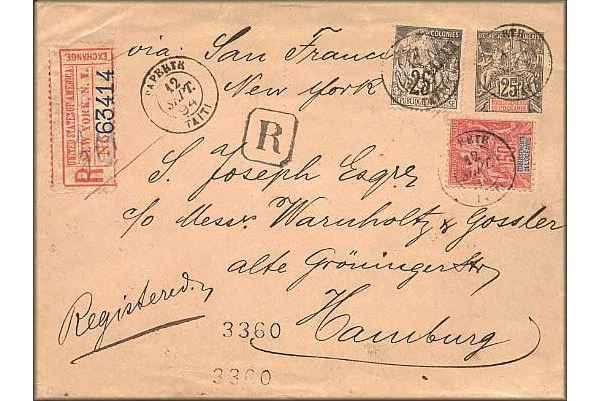 via: San Francisco
New York
UNITED STATES OF AMERICA
EXCHANGE.
NEW YORK, N. Y.
R No
63414
PAPEETE
12
SEPT.
94
TAITI
COLONIES
25c
25
R
S. Joseph Esqre
c/o Messrs Warnholtz & Gossler
alte Gröningerstr
Hamburg
Registered.
3360
3360